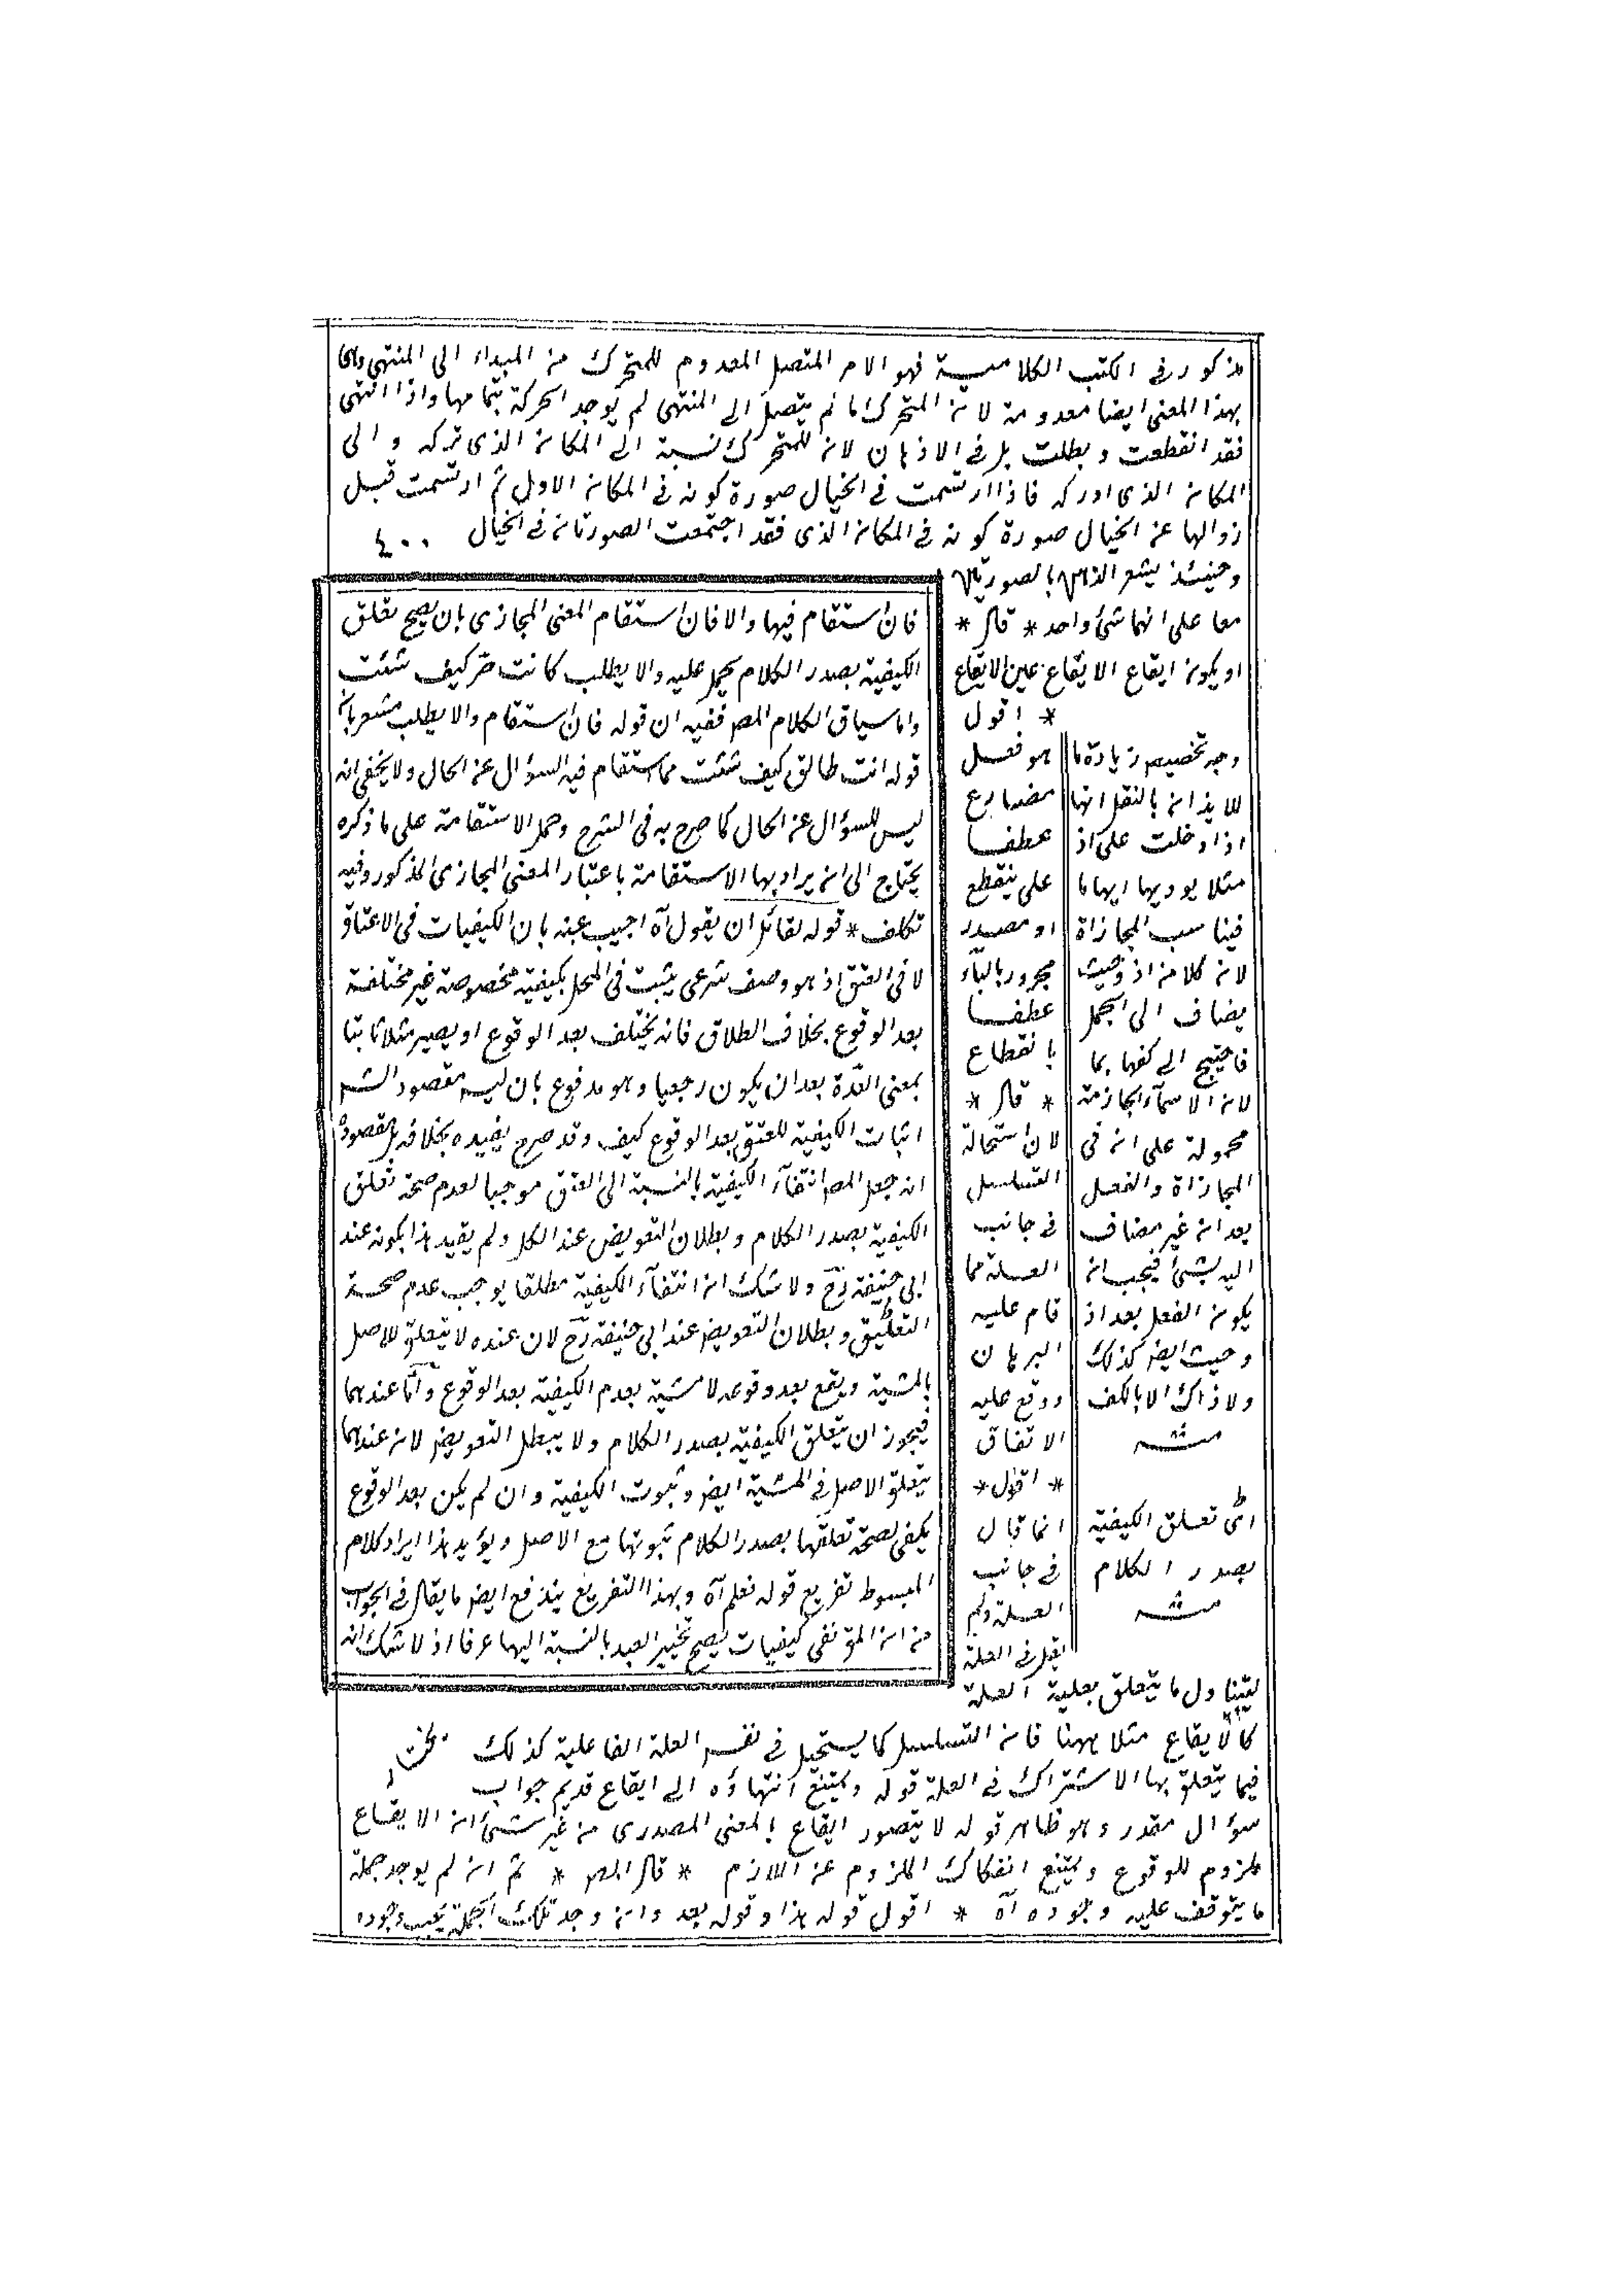 مذكور فى الكتب الكلامية فهو الامر المتصل المعدوم للمتحرك من المبداء الى المنتهى وهى
بهذا المعنى ايضا معدومة لان المتحرك ما لم يتصل الى المنتهى لم يوجد الحركة بتمامها واذا انتهى
فقد انقطعت وبطلت بل فى الاذهان لان للمتحرك نسبة الى المكان الذى تركه و الى
المكان الذى ادركه فاذا ارتسمت فى الخيال صورة كونه فى المكان الاول ثم ارتسمت قبل
زوالها عن الخيال صورة كونه فى المكان الذى فقد اجتمعت الصورتان فى الخيال ٤٠٠
وحينئذ يشعر الذهن بالصورتين
معا على انهما شئ واحد * قال *
او يكون ايقاع الايقاع عين الايقاع
* اقول
هو فعل
مضارع
عطفا
على ينقطع
او مصدر
مجرور بالباء
عطفا
بانقطاع
* قال *
لان استحالة
التسلسل
فى جانب
العلة مما
قام عليه
البرهان
ووقع عليه
الاتفاق
* اقول *
انما قال
فى جانب
العلة ولم
يقل فى العلة
ليتناول ما يتعلق بعلية العلة
كالايقاع مثلا ههنا فان التسلسل كما يستحيل فى نفس العلة الفاعلية كذلك
فيما يتعلق بها الاشتراك فى العلة قوله ويمتنع انتهاؤه الى ايقاع قديم جواب
سؤال مقدر وهو ظاهر قوله لا يتصور ايقاع بالمعنى المصدرى من غير شئ ان الايقاع
ملزوم للوقوع ويمتنع انفكاك الملزوم عن اللازم * قال المص * ثم ان لم يوجد جملة
ما يتوقف عليه وجوده آه * اقول قوله هذا وقوله بعد وان وجد تلك الجملة يجب وجوده
وجه تخصيص زيادة ما
للايذان بالنقل انها
اذا دخلت على اذ
مثلا يوديها ابهاما
فيناسب المجازاة
لان كلا من اذ وحيث
يضاف الى الجمل
فاحتيج الى كفها بما
لان الاسماء الجازمة
محمولة على ان فى
المجازاة والفعل
بعد ان غير مضاف
اليه لشئ فيجب ان
يكون الفعل بعد اذ
وحيث ايض كذلك
ولا ذاك الا بالكف
منه
اى تعلق الكيفية
بصدر الكلام
منه
فان استقام فيها والا فان استقام المعنى المجازى بان يصح تعلق
الكيفية بصدر الكلام يحمل عليه والا يطلب كانت حر كيف شئت
واما سياق الكلام المص ففيه ان قوله فان استقام والا يطلب مشعر بان
قوله انت طالق كيف شئت مما استقام فيه السؤال عن الحال ولا يخفى انه
ليس للسؤال عن الحال كما صرح به فى الشرح وحمل الاستقامة على ما ذكره
يحتاج الى ان يراد بها الاستقامة باعتبار المعنى المجازى المذكور وفيه
تكلف * قوله لقائل ان يقول آه اجيب عنه بان الكيفيات فى الاعتاق
لا فى العتق اذ هو وصف شرعى يثبت فى المحل بكيفية مخصوصة غير مختلفة
بعد الوقوع بخلاف الطلاق فانه يختلف بعد الوقوع او يصير مثلا ثابتا
بمعنى العدة بعد ان يكون رجعيا وهو مدفوع بان ليس مقصود الش
اثبات الكيفية للعتق بعد الوقوع كيف وقد صرح يفيده بخلافه بل مقصوده
انه جعل المص انتفاء الكيفية بالنسبة الى العتق موجبا لعدم صحة تعلق
الكيفية بصدر الكلام وبطلان التفويض عند الكل ولم يقيد هذا بكونه عند
ابى حنيفة رح ولا شك ان انتفاء الكيفية مطلقا يوجب عدم صحة
التعليق وبطلان التفويض عند ابى حنيفة رح لان عنده لا يتعلق الاصل
بالمشية ويقع بعد وقوعه لا مشية بعدم الكيفية بعد الوقوع واما عندهما
فيجوز ان يتعلق الكيفية بصدر الكلام ولا يبطل التفويض لان عندهما
يتعلق الاصل فى المشية ايض وثبوت الكيفية وان لم يكن بعد الوقوع
يكفى لصحة تعلقها بصدر الكلام ثبوتها مع الاصل ويؤيد هذا ايراد كلام
المبسوط تفريع قوله فعلم آه وبهذا التفريع يندفع ايض ما يقال فى الجواب
من ان المق نفى كيفيات يصح تخيير العبد بالنسبة اليها عرفا اذ لا شك انه